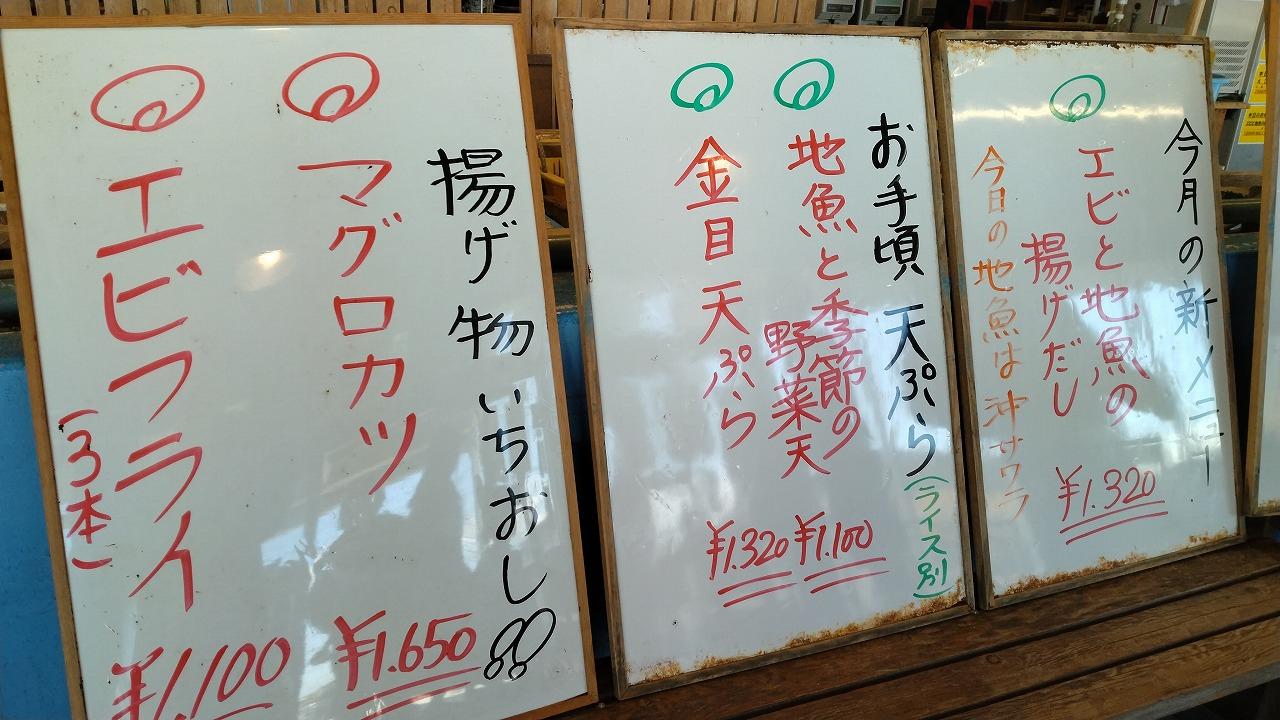 今月の新メニュー
エビと地魚の
揚げだし
¥1.320
今日の地魚は沖サワラ
お手頃 天ぷら(ライス別)
地魚と季節の
野菜天
¥1.100
金目天ぷら
¥1.320
揚げ物いちおし!!
マグロカツ
¥1.650
エビフライ
(3本)
¥1.100